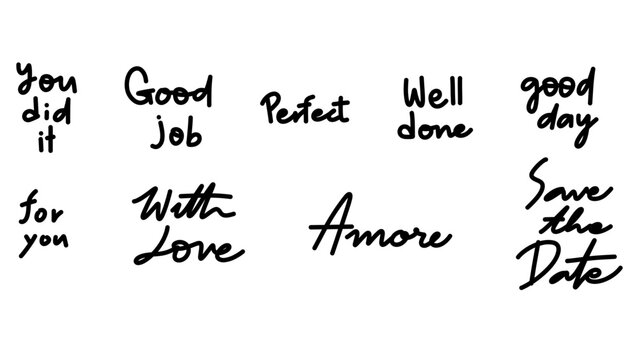 you
did
it
Good
job
Perfect
Well
done
good
day
for
you
With
Love
Amore
Save
the
Date